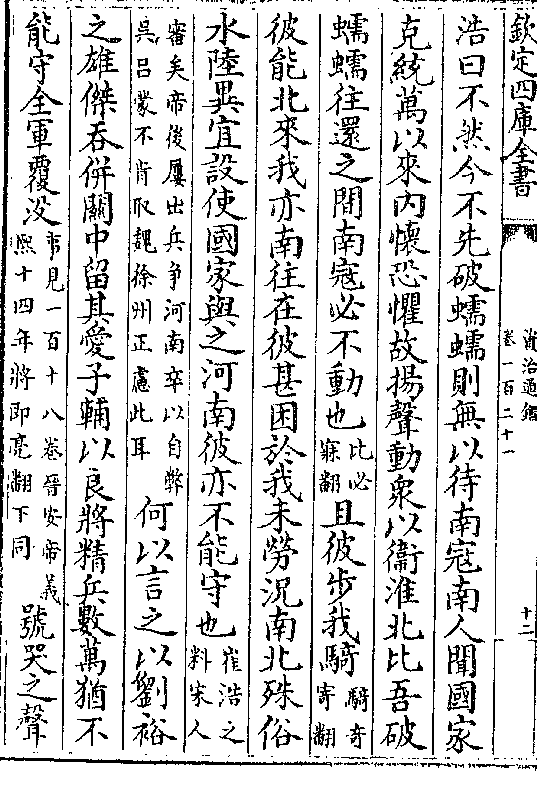 欽定四庫全書
資治通鑑
卷一百二十一
十二
浩曰不然今不先破蠕蠕則無以待南寇南人聞國家
克統萬以來内懷恐懼故揚聲動衆以衞淮北比吾破
蠕蠕往還之間南寇必不動也比必寐翻且彼步我騎騎奇寄翻
彼能北來我亦南往在彼甚困於我未勞況南北殊俗
水陸異宜設使國家與之河南彼亦不能守也崔浩之料宋人
審矣帝後屢出兵争河南卒以自弊吳吕蒙不肯取魏徐州正慮此耳何以言之以劉裕
之雄傑吞併關中留其愛子輔以良將精兵數萬猶不
能守全軍覆没事見一百十八卷晉安帝義熙十四年將即亮翻下同號哭之聲